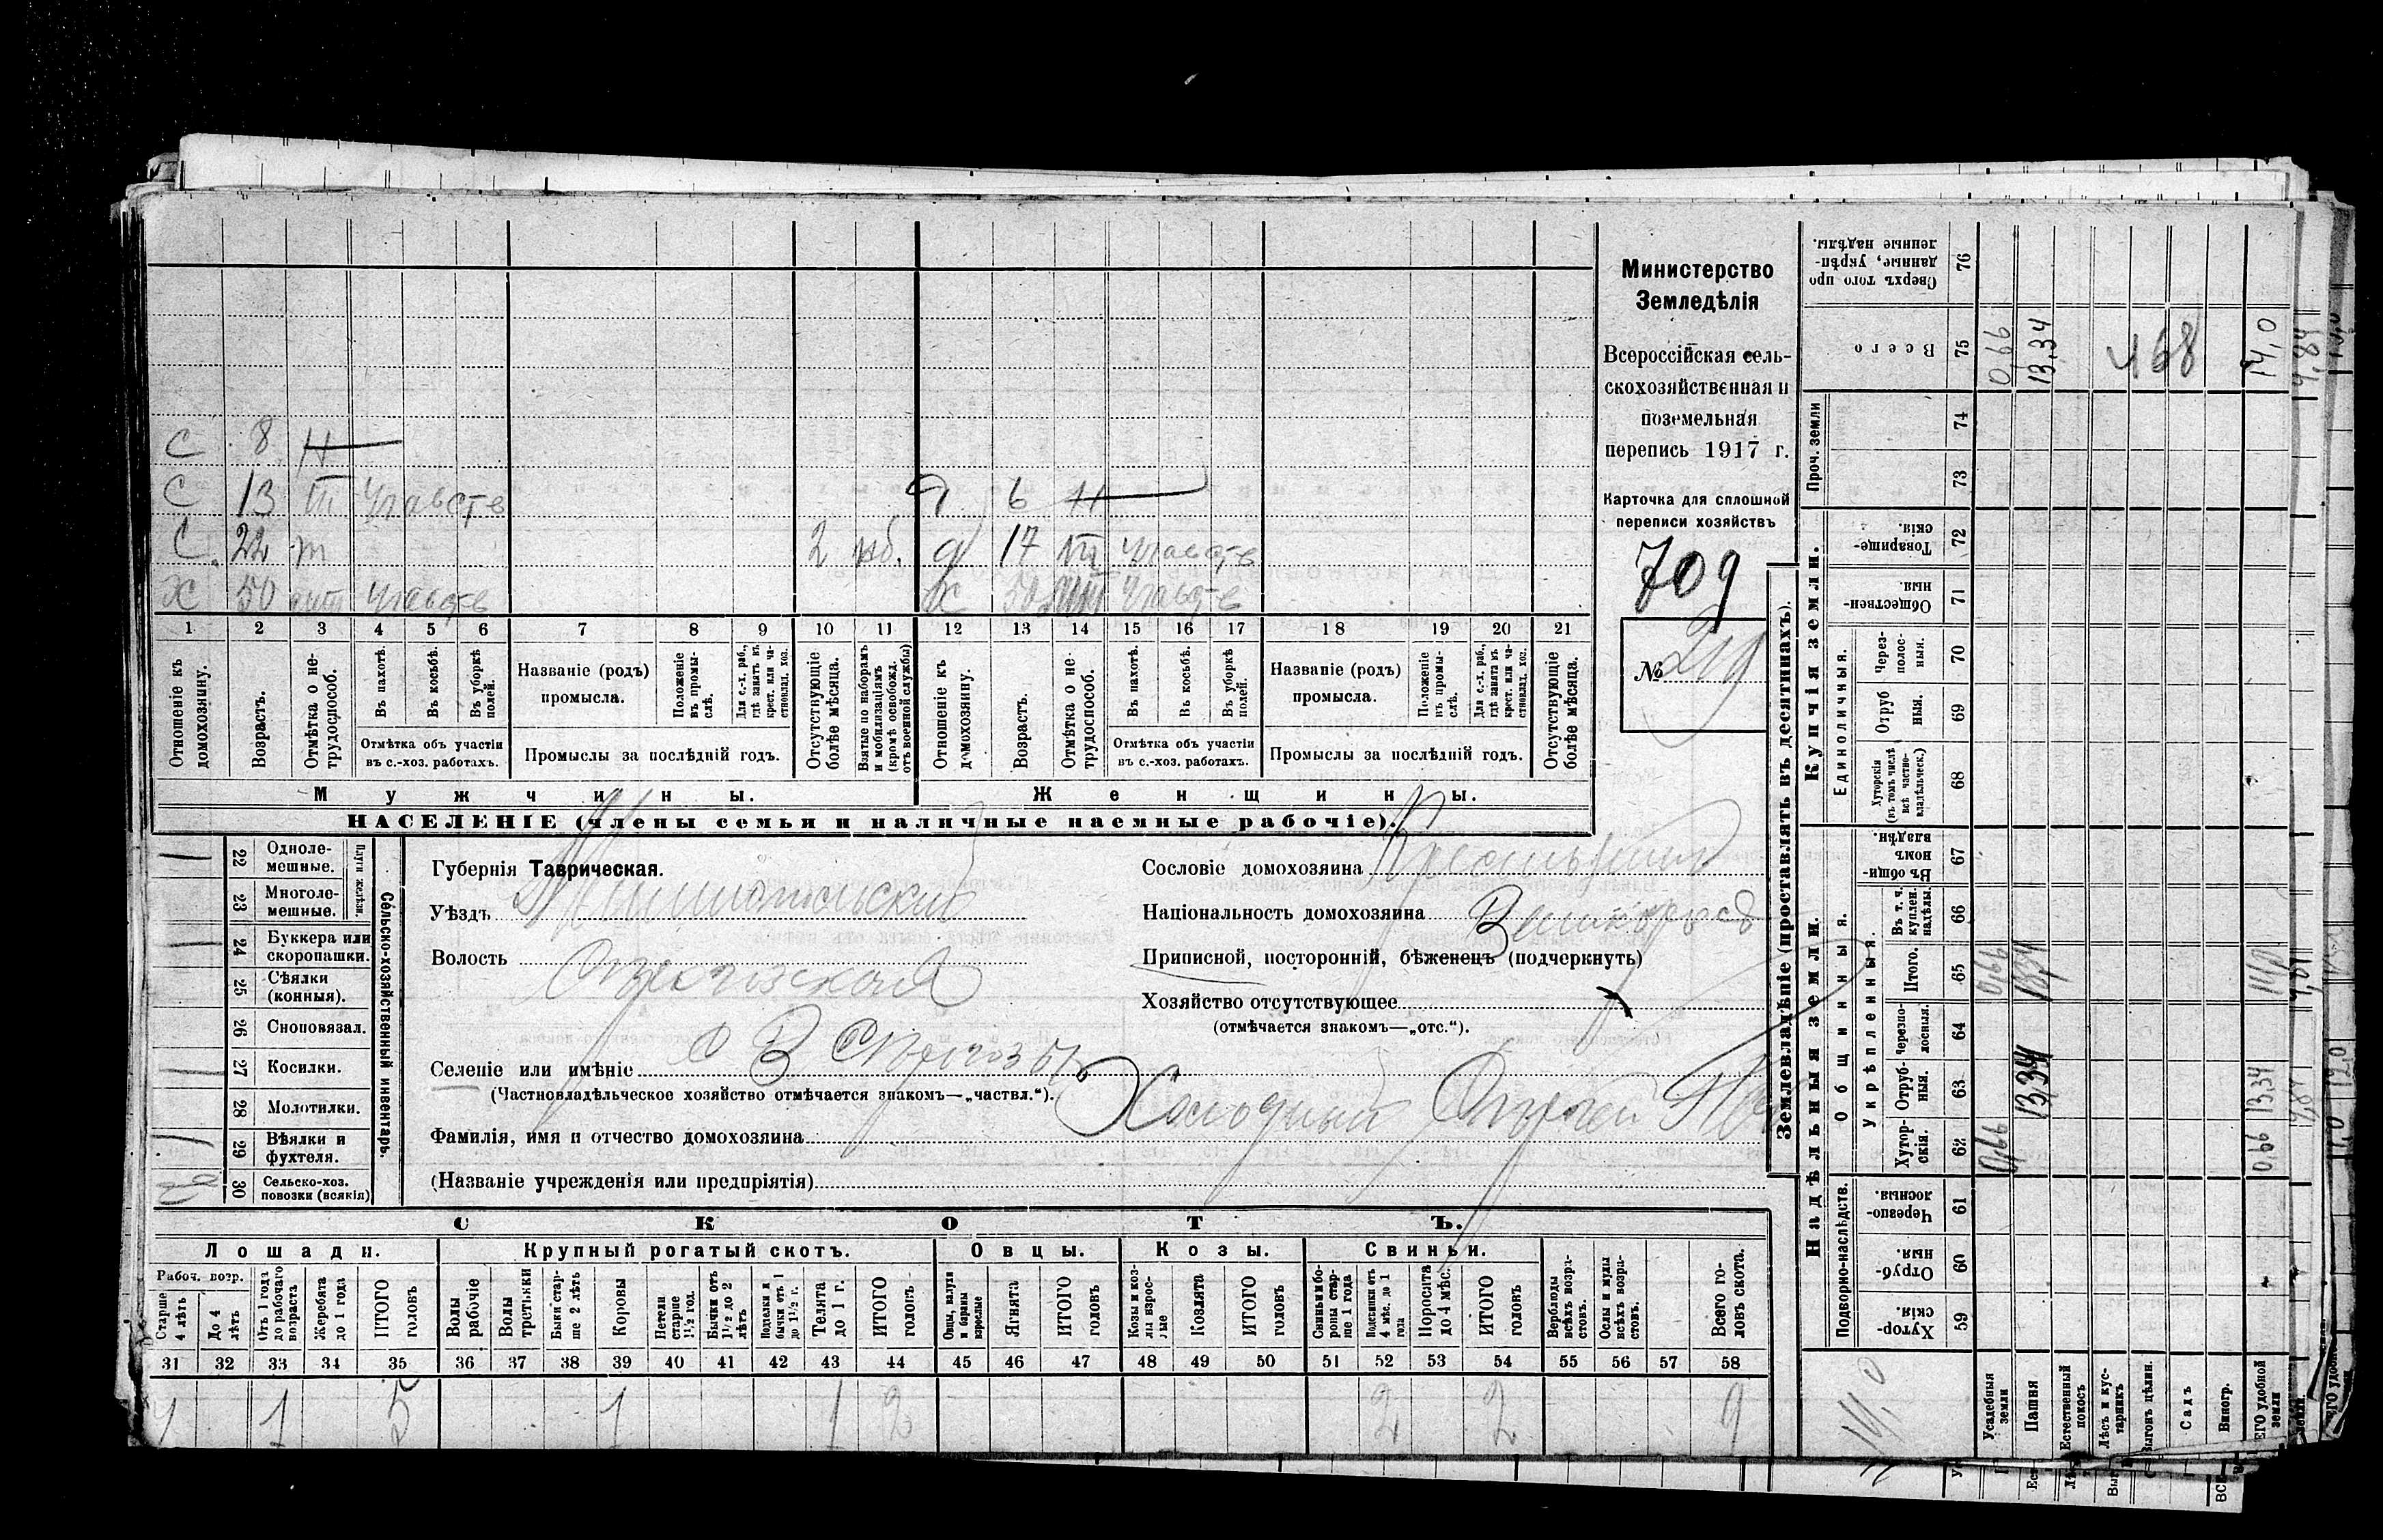 С 8 Н
С 13 III участв Д 6 Н
С 22 2 Д 17 участв
Х 50 участв Ж 50 участв
1 2 3 4 5 6 7 8 9 10 11 12 13 14 15 16 17 18 19 20 21
Отношеніе къ домохозяину.
Возрастъ.
Отмѣтка о нетрудоспособ.
Въ пахотѣ.
Въ косьбѣ.
Въ уборкѣ полей.
Отмѣтка объ участіи
въ с.-хоз. работахъ.
Названіе (родъ)
промысла.
Положеніе въ промыслѣ.
Для с.-х. раб., гдѣ занятъ въ крест. или частновлад. хоз.
Промыслы за послѣдній годъ.
Отсутствующіе болѣе мѣсяца.
Взятые по наборамъ и мобилизаціямъ (кромѣ освобожд. отъ военной службы)
Отношеніе къ домохозяину.
Возрастъ.
Отмѣтка о нетрудоспособ.
Въ пахотѣ.
Въ косьбѣ.
Въ уборкѣ полей.
Отмѣтка объ участіи
въ с.-хоз. работахъ.
Названіе (родъ)
промысла.
Положеніе въ промыслѣ.
Для с.-х. раб., гдѣ занятъ въ крест. или частновлад. хоз.
Промыслы за послѣдній годъ.
Отсутствующіе болѣе мѣсяца.
Мужчины. Женщины.
НАСЕЛЕНІЕ (члены семьи и наличные наемные рабочіе).
Министерство
Земледѣлія
Всероссійская сель-
скохозяйственная и
поземельная
перепись 1917 г.
Карточка для сплошной
переписи хозяйствъ
709
№ 219
Плуги желѣзн.
22 Однолемешные. 1
23 Многолемешные.
24 Буккера или скоропашки. 1
25 Сѣялки (конныя).
26 Сноповязал.
27 Косилки. 1
28 Молотилки.
29 Вѣялки и фухтеля. 1
30 Сельско-хоз. повозки (всякія) 2
Сельско-хозяйственный инвентарь.
Губернія Таврическая.
Уѣздъ Мелитопольскій
Волость Серогозская
Селеніе или имѣніе с В Серогозы
(Частновладѣльческое хозяйство отмѣчается знакомъ—„частвл.“).
Фамилія, имя и отчество домохозяина Холодный Сергей
(Названіе учрежденія или предпріятія)
Сословіе домохозяина Крестьянин
Національность домохозяина Великоросс
Приписной, посторонній, бѣженецъ (подчеркнуть)
Хозяйство отсутствующее
(отмѣчается знакомъ—„отс.“).
СКОТЪ.
Лошади. Крупный рогатый скотъ. Овцы. Козы. Свиньи.
Рабоч. возр.
Старше 4 лѣтъ
До 4 лѣтъ
Отъ 1 года до рабочаго возраста
Жеребята до 1 года
ИТОГО головъ
Волы рабочіе
Волы третьяки
Быки старше 2 лѣтъ
Коровы
Нетели старше 1½ год.
Бычки отъ 1½ до 2 лѣтъ
Подтелки и бычки отъ 1 до 1½ г.
Телята до 1 г.
ИТОГО головъ
Овцы, валухи и бараны взрослые
Ягнята
ИТОГО головъ
Козы и козлы взрослые
Козлята
ИТОГО головъ
Свиньи и боровы старше 1 года
Подсвинки отъ 4 мѣс. до 1 года
Поросята до 4 мѣс.
ИТОГО головъ
Верблюды всѣхъ возрастовъ.
Ослы и мулы всѣхъ возрастовъ.
Всего головъ скота.
31 32 33 34 35 36 37 38 39 40 41 42 43 44 45 46 47 48 49 50 51 52 53 54 55 56 57 58
4 1 5 1 1 2 2 2 9
Землевладѣніе (проставлять въ десятинахъ).
Надѣльныя земли. Купчія земли. Проч. земли
Подворно-наслѣдств.
Общинныя.
Укрѣпленныя.
Единоличныя.
59 Хуторскія.
60 Отрубныя.
61 Черезполосныя.
62 Хуторскія. 0,66
63 Отрубныя. 13,34
64 Черезполосныя.
65 Итого. 0,66 13,34
66 Въ т. ч. куплен. надѣлы.
67 Въ общинномъ владѣн.
68 Хуторскія (въ томъ числѣ всѣ частновладѣльческ.)
69 Отрубныя.
70 Черезполосныя.
71 Общественныя
72 Товарищескія.
73
74
75 Всего 0,66 13,34 468 14,0
76 Сверхъ того проданные, укрѣпленные надѣлы.
14,0
Усадебныя земли
Пашня
Естественный покосъ
Лѣсъ и кустарникъ
Выгонъ цѣлин.
Садъ
Виногр.
ЕГО удобной земли
0,66 13,34